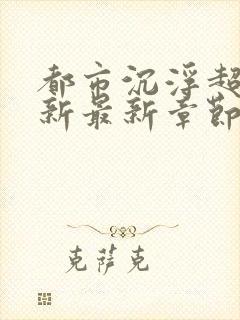 都市沉浮超
新最新章節
克萨克